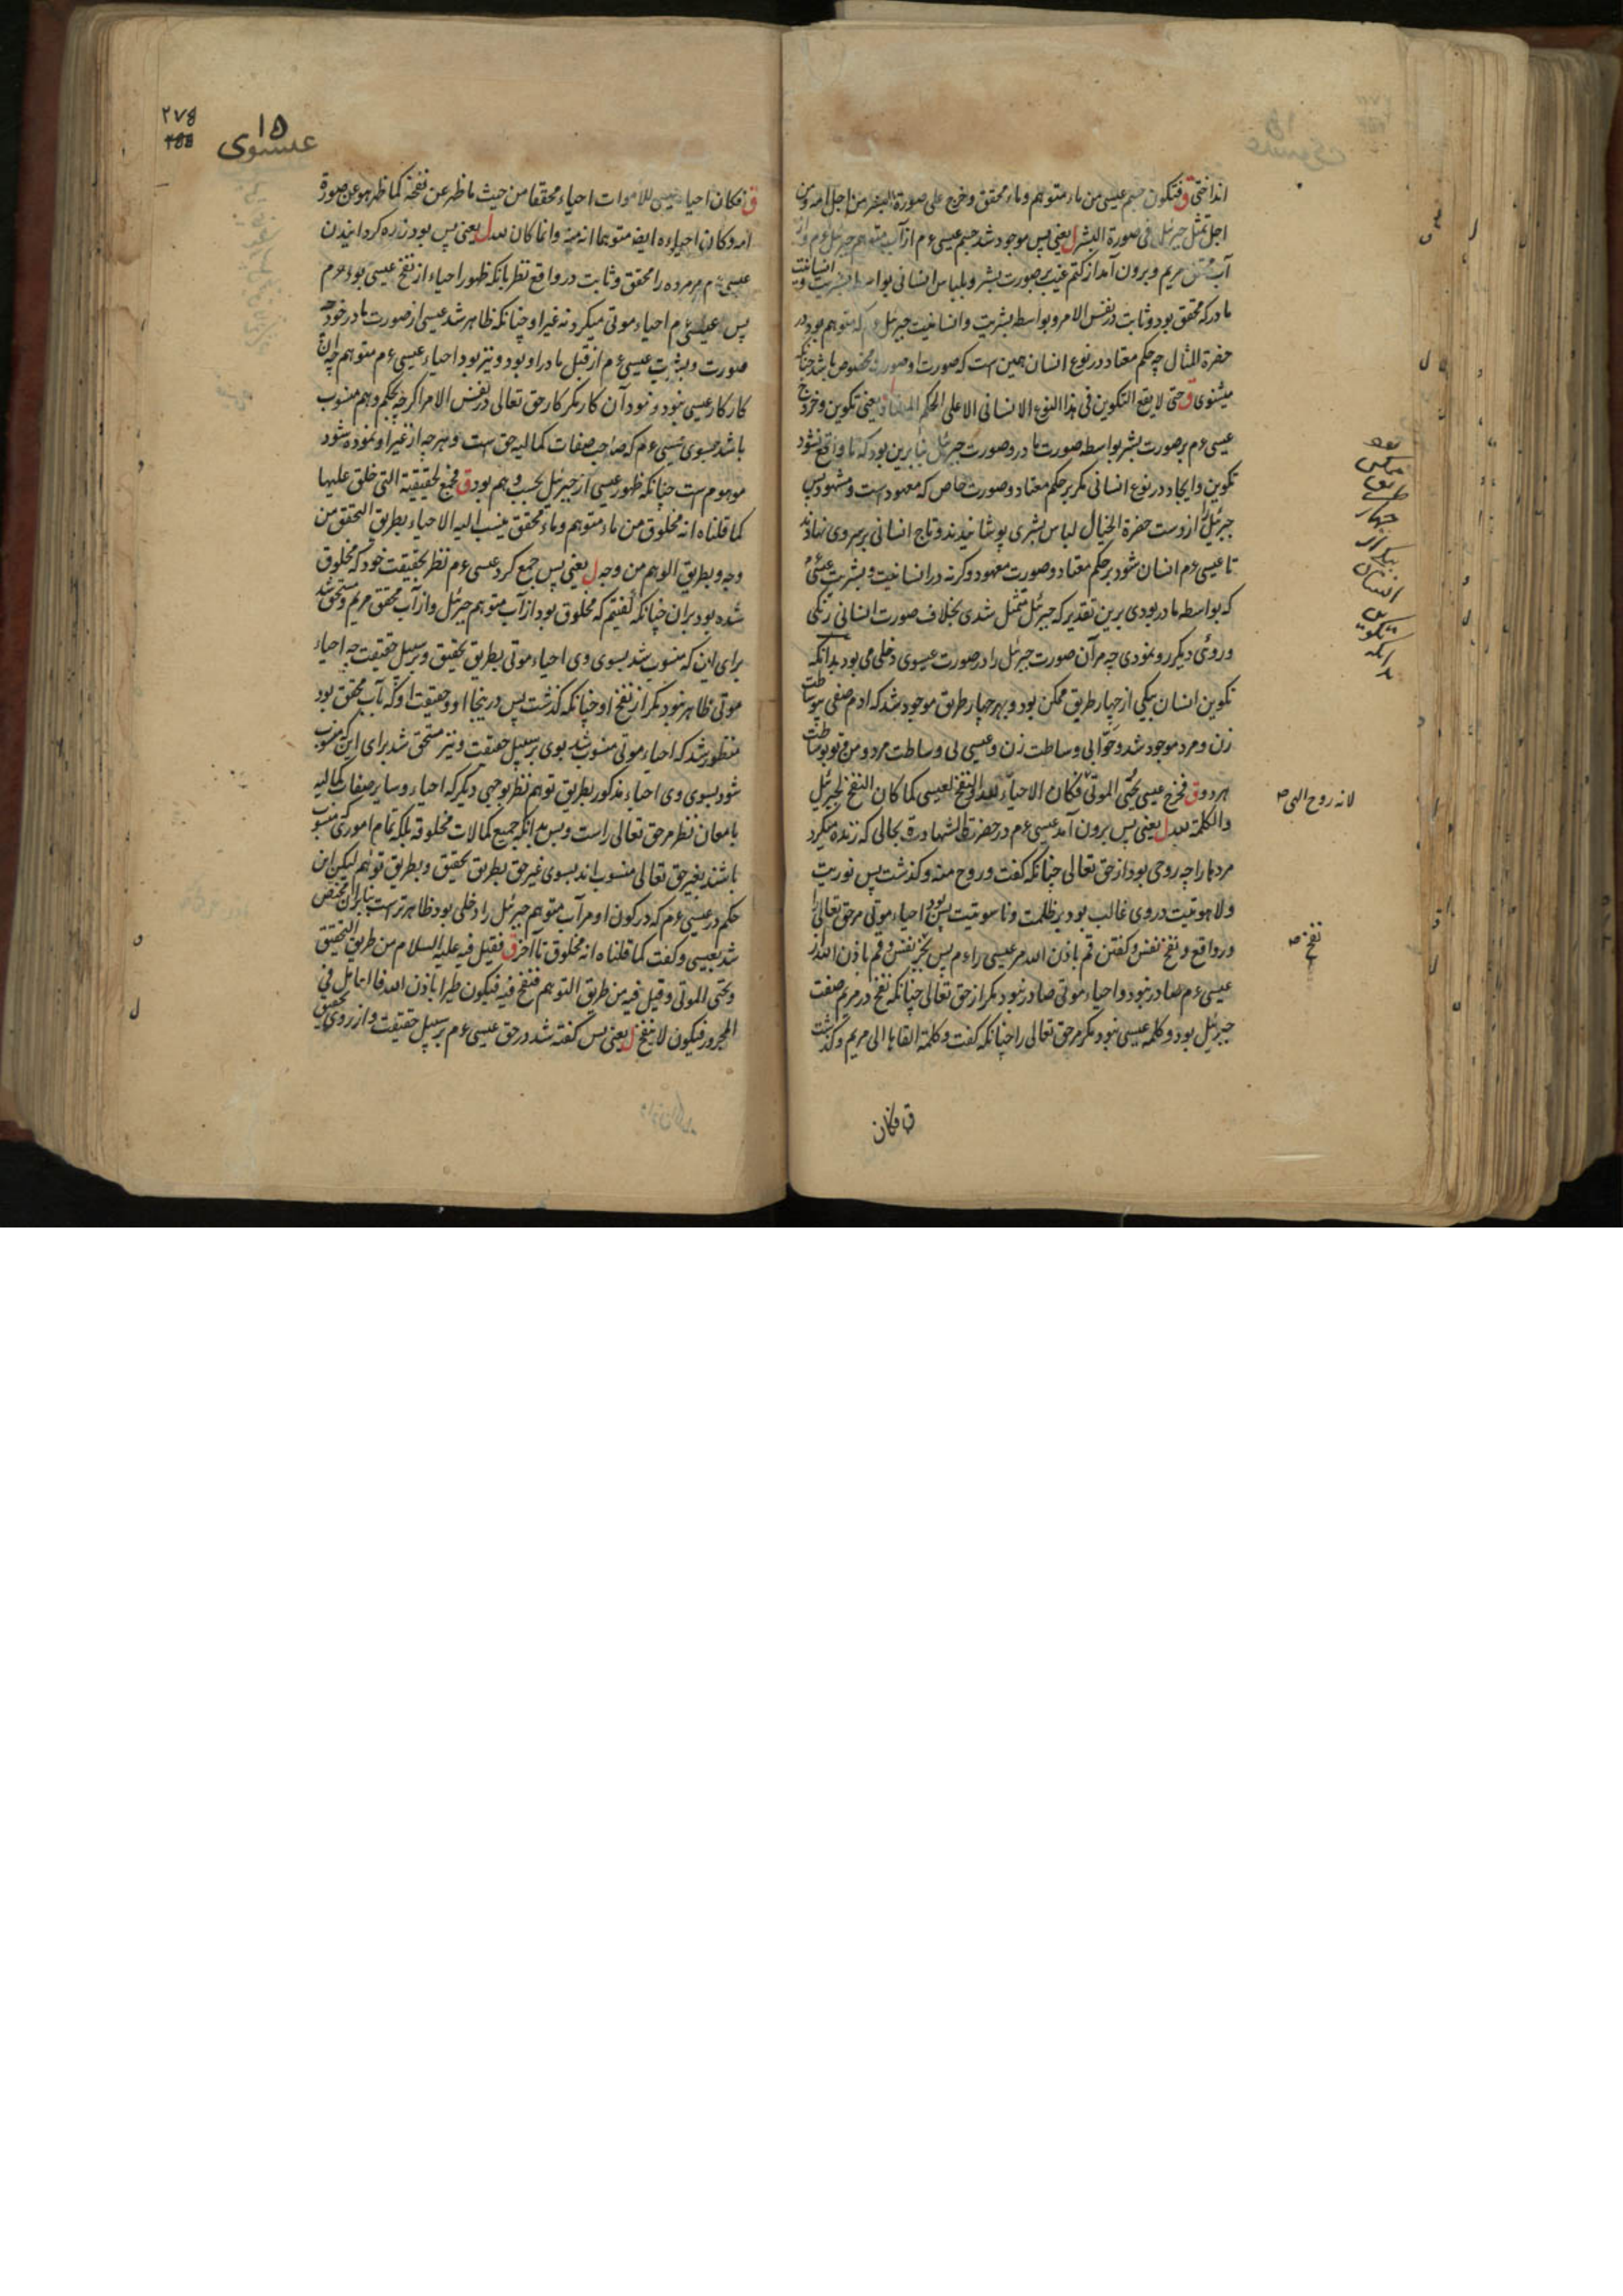 انداختی ق فتکون جسم عیسی من ماء متوهم وماء محقق وخرج علی صورة البشر من اجل امه ومن
اجل تمثل جبرئیل فی صورة البشر ل یعنی پس موجود شد جسم عیسی ءم از آب متوهم جبرئیل ءم واز
آب محقق مریم و برون آمد از کتم غیب بر صورت بشر و بلباس انسانی بواسطه بشریت و انسانیت
مادر که محقق بود و ثابت در نفس الامر و بواسطه بشریت و انسانیت جبرئیل ءم که متوهم بود در
حضرة المثال چه حکم معتاد در نوع انسان همین است که صورت او صورت مخصوص باشد چنانکه
میشنوی ق حتی لا یقع التکوین فی هذا النوع الانسانی الا علی الحکم المعتاد ل یعنی تکوین و خروج
عیسی ءم بر صورت بشر بواسطه صورت مادر و صورت جبرئیل بنا برین بود که تا واقع نشود
تکوین و ایجاد در نوع انسانی مگر بر حکم معتاد و صورت خاص که معهود است و مشهود پس
جبرئیل را از دست حضرة الخیال لباس بشری پوشانیدند و تاج انسانی بر سر وی نهادند
تا عیسی ءم انسان شود بر حکم معتاد و صورت معهود و گرنه در انسانیت و بشریت عیسی
که بواسطه مادر بودی برین تقدیر که جبرئیل متمثل شدی بخلاف صورت انسانی رنگی
و روئی دیگر رو نمودی چه مر آن صورت جبرئیل را در صورت عیسوی دخلی می بود بدانکه
تکوین انسان بیکی از چهار طریق ممکن بود و بهر چهار طریق موجود شد که ادم صفی بی وساطت
زن و مرد موجود شد و حوا بی وساطت زن و عیسی بی وساطت مرد و من و تو بوساطت
هر دو ق فخرج عیسی یحیی الموتی فکان الاحیاء لله والنفخ لعیسی کما کان النفخ لجبرئیل
والکلمة لله ل یعنی پس برون آمد عیسی ءم در حضرة الشهادة بحالی که زنده میکرد
مردها را چه روحی بود از حق تعالی چنانکه گفت و روح منه و گذشت پس نوریت
و لاهوتیت در وی غالب بود بر ظلمت و ناسوتیت پس بود احیاء موتی مر حق تعالی را
در واقع و نفخ نفس و گفتن قم باذن الله مر عیسی را ءم پس بجز نفس و قم باذن الله از
عیسی ءم صادر نبود و احیاء موتی صادر نبود مگر از حق تعالی چنانکه نفخ در مریم صفت
جبرئیل بود و کلمه عیسی نبود مگر مر حق تعالی را چنانکه گفت و کلمة القاها الی مریم و گذشت
ق فکان
بدانکه
تکوین
انسان
بیکی از
چهار
طریق
ممکن
بود
لانه روح الهی صح
نفخ صح
۲۷۵
۱۵
عیسوی
ق فکان احیاء عیسی للاموات احیاء محققا من حیث ما ظهر عن نفخه کما ظهر هو عن صورة
امه وکان احیاؤه ایضا متوهما انه منه وانما کان لله ل یعنی پس بود زنده گردانیدن
عیسی ءم مر مرده را محقق و ثابت در واقع نظر بانکه ظهور احیاء از نفخ عیسی بود ءم
پس عیسی ءم احیاء موتی میکرد نه غیر او چنانکه ظاهر شد عیسی از صورت مادر خود چه
صورت و بشریت عیسی ءم از قبل مادر او بود و نیز بود احیاء عیسی ءم متوهم چه آن
کار کار عیسی نبود و نبود آن کار مگر کار حق تعالی در نفس الامر اگر چه بحکم وهم منسوب
باشد بسوی عیسی ءم که صاحب صفات کمالیه حق است و هر چه از غیر او نموده شود
موهوم است چنانکه ظهور عیسی از جبرئیل بحسب وهم بود ق فجمع لحقیقته التی خلق علیها
کما قلناه انه مخلوق من ماء متوهم وماء محقق ینسب الیه الاحیاء بطریق التحقق من
وجه وبطریق الوهم من وجه ل یعنی پس جمع کرد عیسی ءم نظر بحقیقت خود که مخلوق
شده بود بران چنانکه گفتیم که مخلوق بود از آب متوهم جبرئیل و از آب محقق مریم و مستحق شد
برای این که منسوب شد بسوی وی احیاء موتی بطریق تحقیق و بر سبیل حقیقت چه احیاء
موتی ظاهر نبود مگر از نفخ او چنانکه گذشت پس درینجا او و حقیقت او که آب محقق بود
منظور شد که احیاء موتی منسوب شد بوی بر سبیل حقیقت و نیز مستحق شد برای این که منسوب
شود بسوی وی احیاء مذکور بطریق توهم نظر بوجهی دیگر که احیاء و سایر صفات کمالیه
بامعان نظر مر حق تعالی راست و بس بدانکه جمیع کمالات مخلوقه بلکه تمام اموری که منسوب
باشند بغیر حق تعالی منسوب اند بسوی غیر حق بطریق تحقیق و بطریق توهم لیکن این
حکم در عیسی ءم که در کون او مر آب متوهم جبرئیل را دخلی بود ظاهرتر است بنابران مختص
شد بعیسی و گفت کما قلناه انه مخلوق تا آخر ق فقیل فیه علیه السلام من طریق التحقیق
ویحیی الموتی وقیل فیه من طریق التوهم فتنفخ فیه فیکون طیرا باذن الله فالعامل فی
المجرور فیکون لا ینفخ ل یعنی پس گفته شد در حق عیسی ءم بر سبیل حقیقت و از روی تحقیق